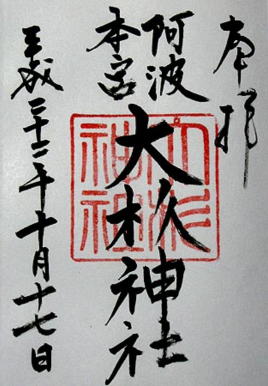 奉拝
阿波
本宮
大杉神社
大杉
神社
平成二十二年十月十七日